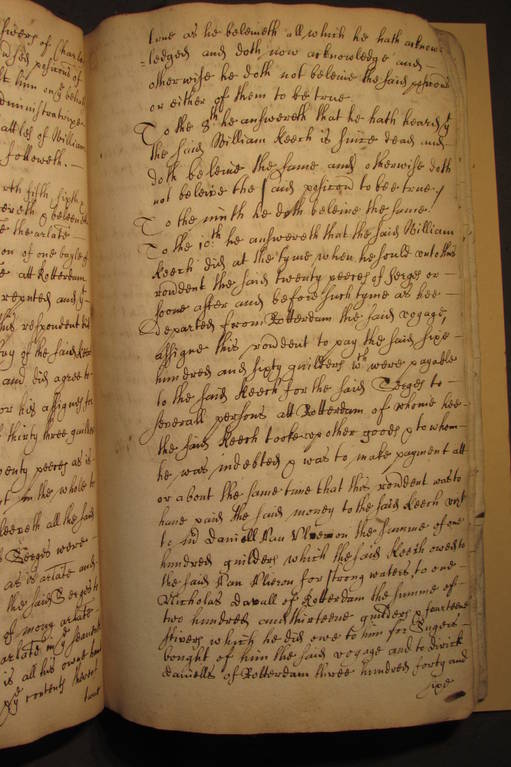 swers of Charles
posicons of
him on ye behalf
Administratrix
attles of William
followeth. –
fifth sixth
& beleeveth
the arlate
on of one bayle of
att Rotterdam
reputed and
this respondent did
of the said Keech
and did agree to
or his assignes for
thirty three guilders
twenty peeces as is
in the whole to
all the said
Serges were
as is arlate and
the said Serges to
of mony arlate
arlate in
is all his owne hand
ye contents thereof
true
true as he beleiveth all which he hath acknow-
=ledged and doth now acknowledge and
otherwise he doth not beleive the said posicons
or either of them to be true
To the 8th he answereth that he hath heard yt
the said William Keech is since dead and
doth beleive the same and otherwise doth
not beleive the said posicon to bee true /
To the ninth he doth beleive the same /
To the 10th he answereth that the said William
Keech did at the tyme when he sould unto this
rondent the said twenty peeces of Serges or –
soone after and before such tyme as hee –
departed from Rotterdam the said voyage,
assigne this rondent to pay the said sixe –
hundred and sixty guilders wch were payable
to the said Keech for the said Serges to –
severall persons att Rotterdam of whome hee –
the said Keech tooke up other goods & to whom –
he was indebted & was to make payment att
or about the same time that this rondent was to
have paid the said money to the said Keech vizt
to Daniell Van the summe of one
hundred guilders which the said Keech owed to
the said Van for strong waters, to one –
Nicholas Davall of Rotterdam the summe of –
two hundred and thirteene guilders & fourteene
stivers which he did owe to him for Sugers –
bought of him the said voyage and to Dirick
Daniells of Rotterdam three hundred forty and
sixe